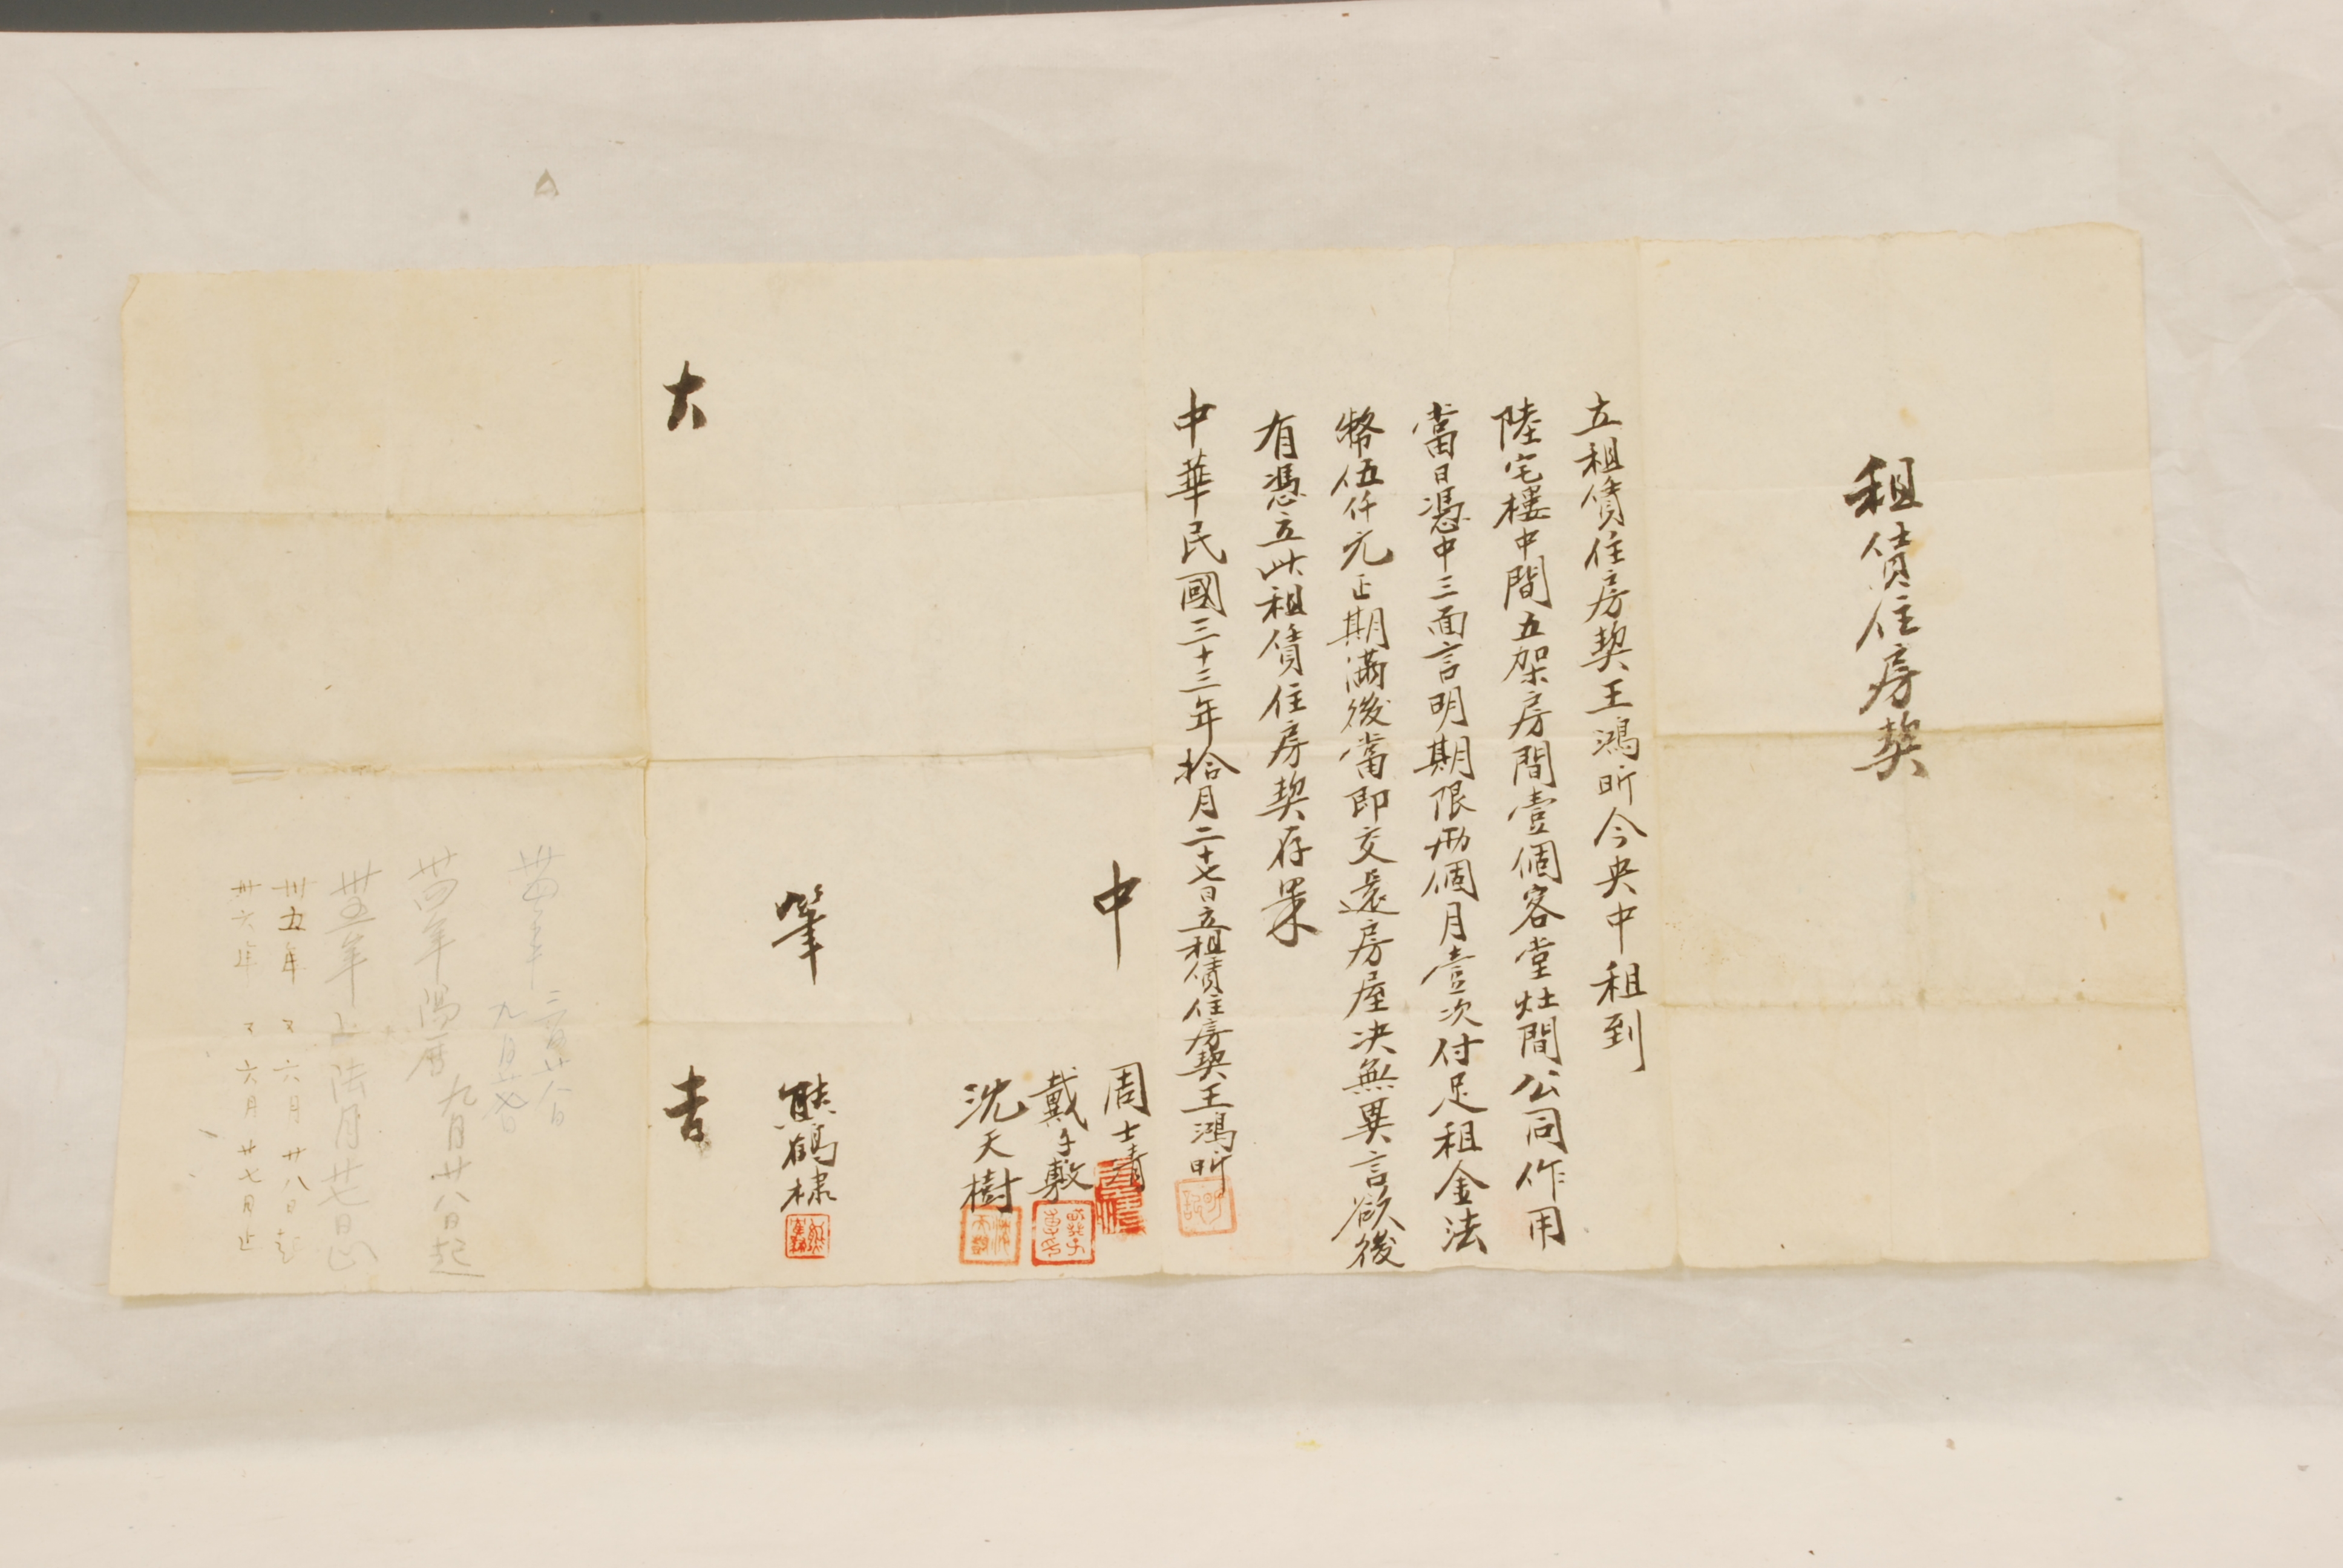 租賃住房契
立租賃住房契王鴻昕今央中租到
陸宅樓中間五架房間壹個客堂灶間公同作用
當日憑中三面言明期限兩個月壹次付足租金法
幣伍仟元正期滿後當即交還房屋決無異言欲後
有憑立此租賃住房契存案
中華民國三十三年拾月二十七日立租賃住房契王鴻昕
中 周士清
戴子敷
沈天樹
筆 熊鶴棣
大吉
卅四年三月廿八日
九月廿七日
卅四年陽曆九月廿八日起
卅五年 陸月廿七日止
卅五年 又六月廿八日起
卅六年 又六月廿七日止